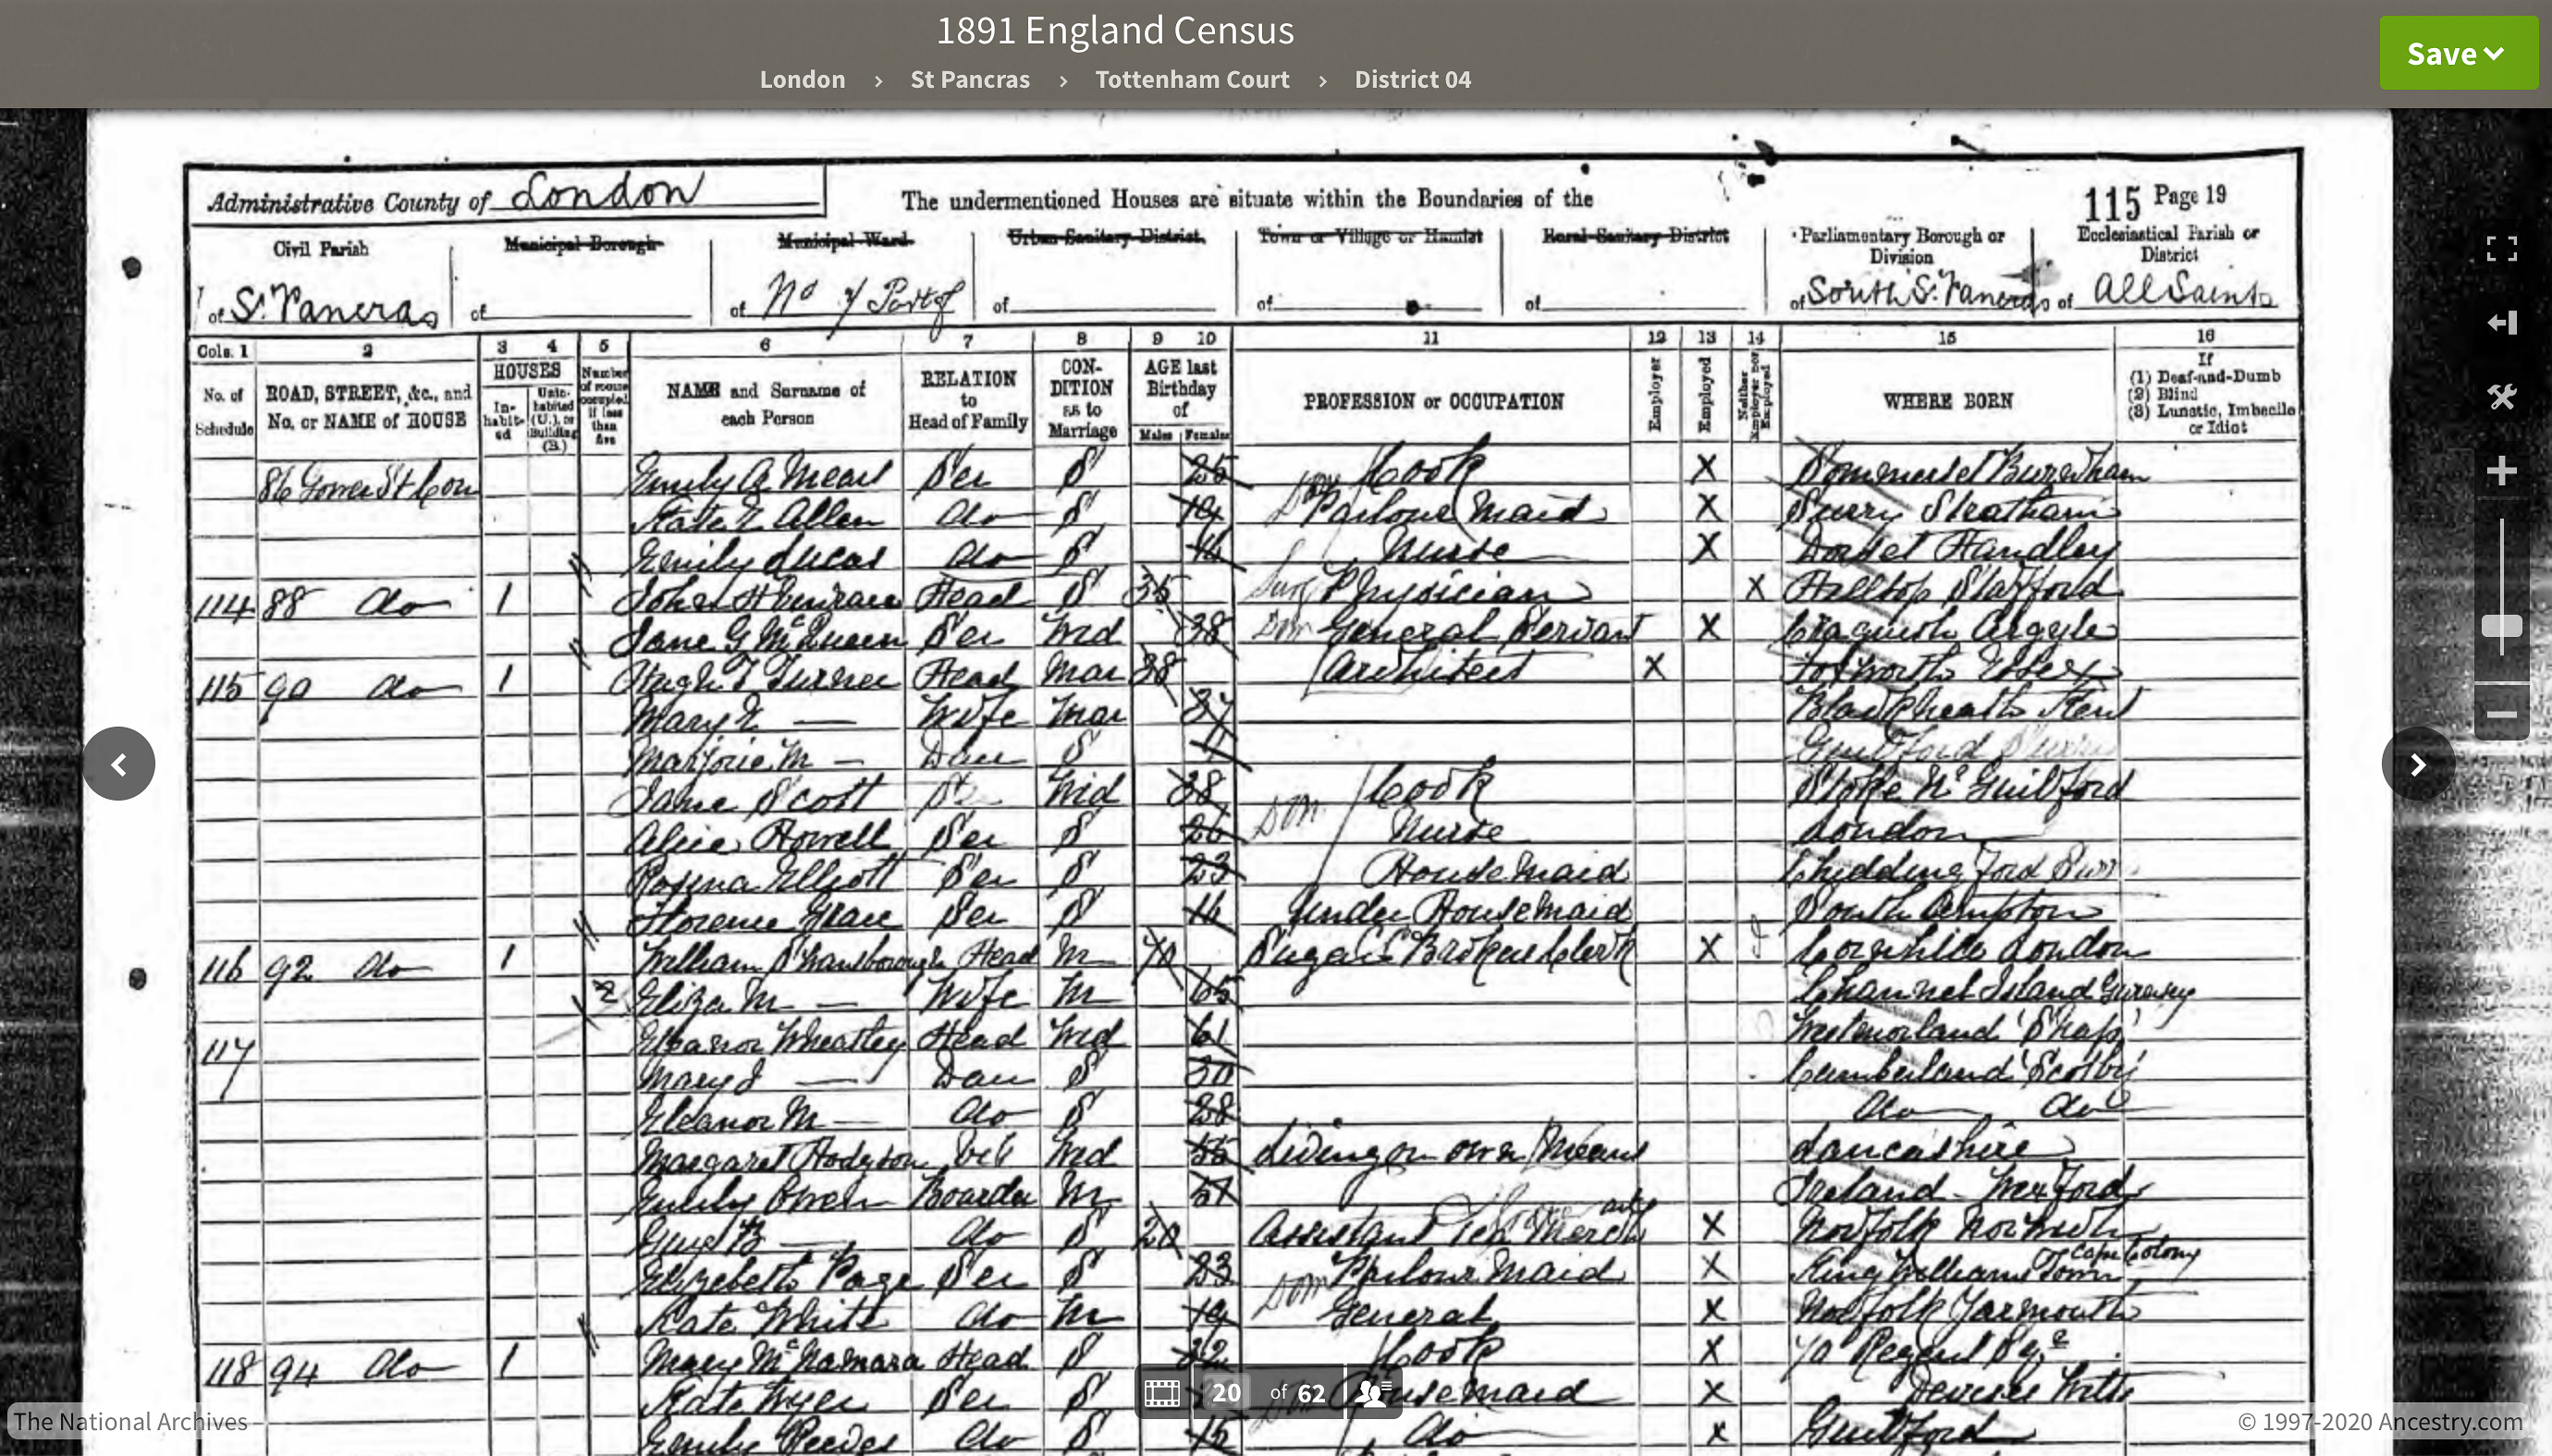 1891 England Census
London › St Pancras › Tottenham Court › District 04
Save
Administrative County of London
The undermentioned Houses are situate within the Boundaries of the
115 Page 19
Civil Parish
Municipal Borough
Municipal Ward
Urban Sanitary District
Town or Village or Hamlet
Rural Sanitary District
Parliamentary Borough or Division
Ecclesiastical Parish or District
of St. Pancras
of
of No 7 Part of
of
of
of
of South St. Pancras
of All Saints
Cols. 1 2 3 4 5 6 7 8 9 10 11 12 13 14 15 16
No. of Schedule
ROAD, STREET, &c., and No. or NAME of HOUSE
HOUSES
In-habit-ed
Unin-habited (U.), or Building (B.)
Number of rooms occupied if less than five
NAME and Surname of each Person
RELATION to Head of Family
CON-DITION as to Marriage
AGE last Birthday of
Males Females
PROFESSION or OCCUPATION
Employer
Employed
Neither Employer nor Employed
WHERE BORN
If (1) Deaf-and-Dumb (2) Blind (3) Lunatic, Imbecile or Idiot
86 Gower St Con Emily A Mears Ser S 25 Dom Cook X Somerset
Kate E Allen do S 19 Parlour Maid X Surrey Streatham
Emily Lucas do S 16 Nurse X Dorset Handley
114 88 do 1 John Head S 35 Physician X Hilltop Stafford
Jane G McQueen Ser Wid 38 Dom General Servant X Craignish Argyle
115 90 do 1 Hugh T Turner Head Mar 38 Architect X Essex
Mary E — Wife Mar 37 Blackheath Kent
Marjorie M — Dau S 4 Guildford Surrey
Jane Scott Ser Wid 38 Dom Cook Stoke Nr Guildford
Alice Howell Ser S 26 Nurse London
Rosina Elliott Ser S 23 Housemaid Chiddingford Surr
Florence Grace Ser S 16 Under Housemaid Southampton
116 92 do 1 William Head M 70 Sugar Broker Clerk X Cornhill London
2 Eliza M — Wife M 65 Channel Island
117 Eleanor Wheatley Head Wid 61 Westmorland 'Shap'
Mary J — Dau S 30 Cumberland 'Scotby'
Eleanor M — do S 28 do do
Margaret Hodgson Wid 55 Living on own Means Lancashire
Emily Owen Boarder M 51 Ireland Wexford
— do S 20 Assistant X Norfolk Norwich
Elizabeth Page Ser S 23 Dom Parlour Maid X King Williams Town Cape Colony
Kate White do M 19 Dom General X Norfolk Yarmouth
118 94 do 1 Mary McNamara Head S 32 Cook X Regent Sqe
Kate Ser S Housemaid X Devizes Wilts
Emily Reeves do S 15 do X Guildford
20 of 62
The National Archives
© 1997-2020 Ancestry.com